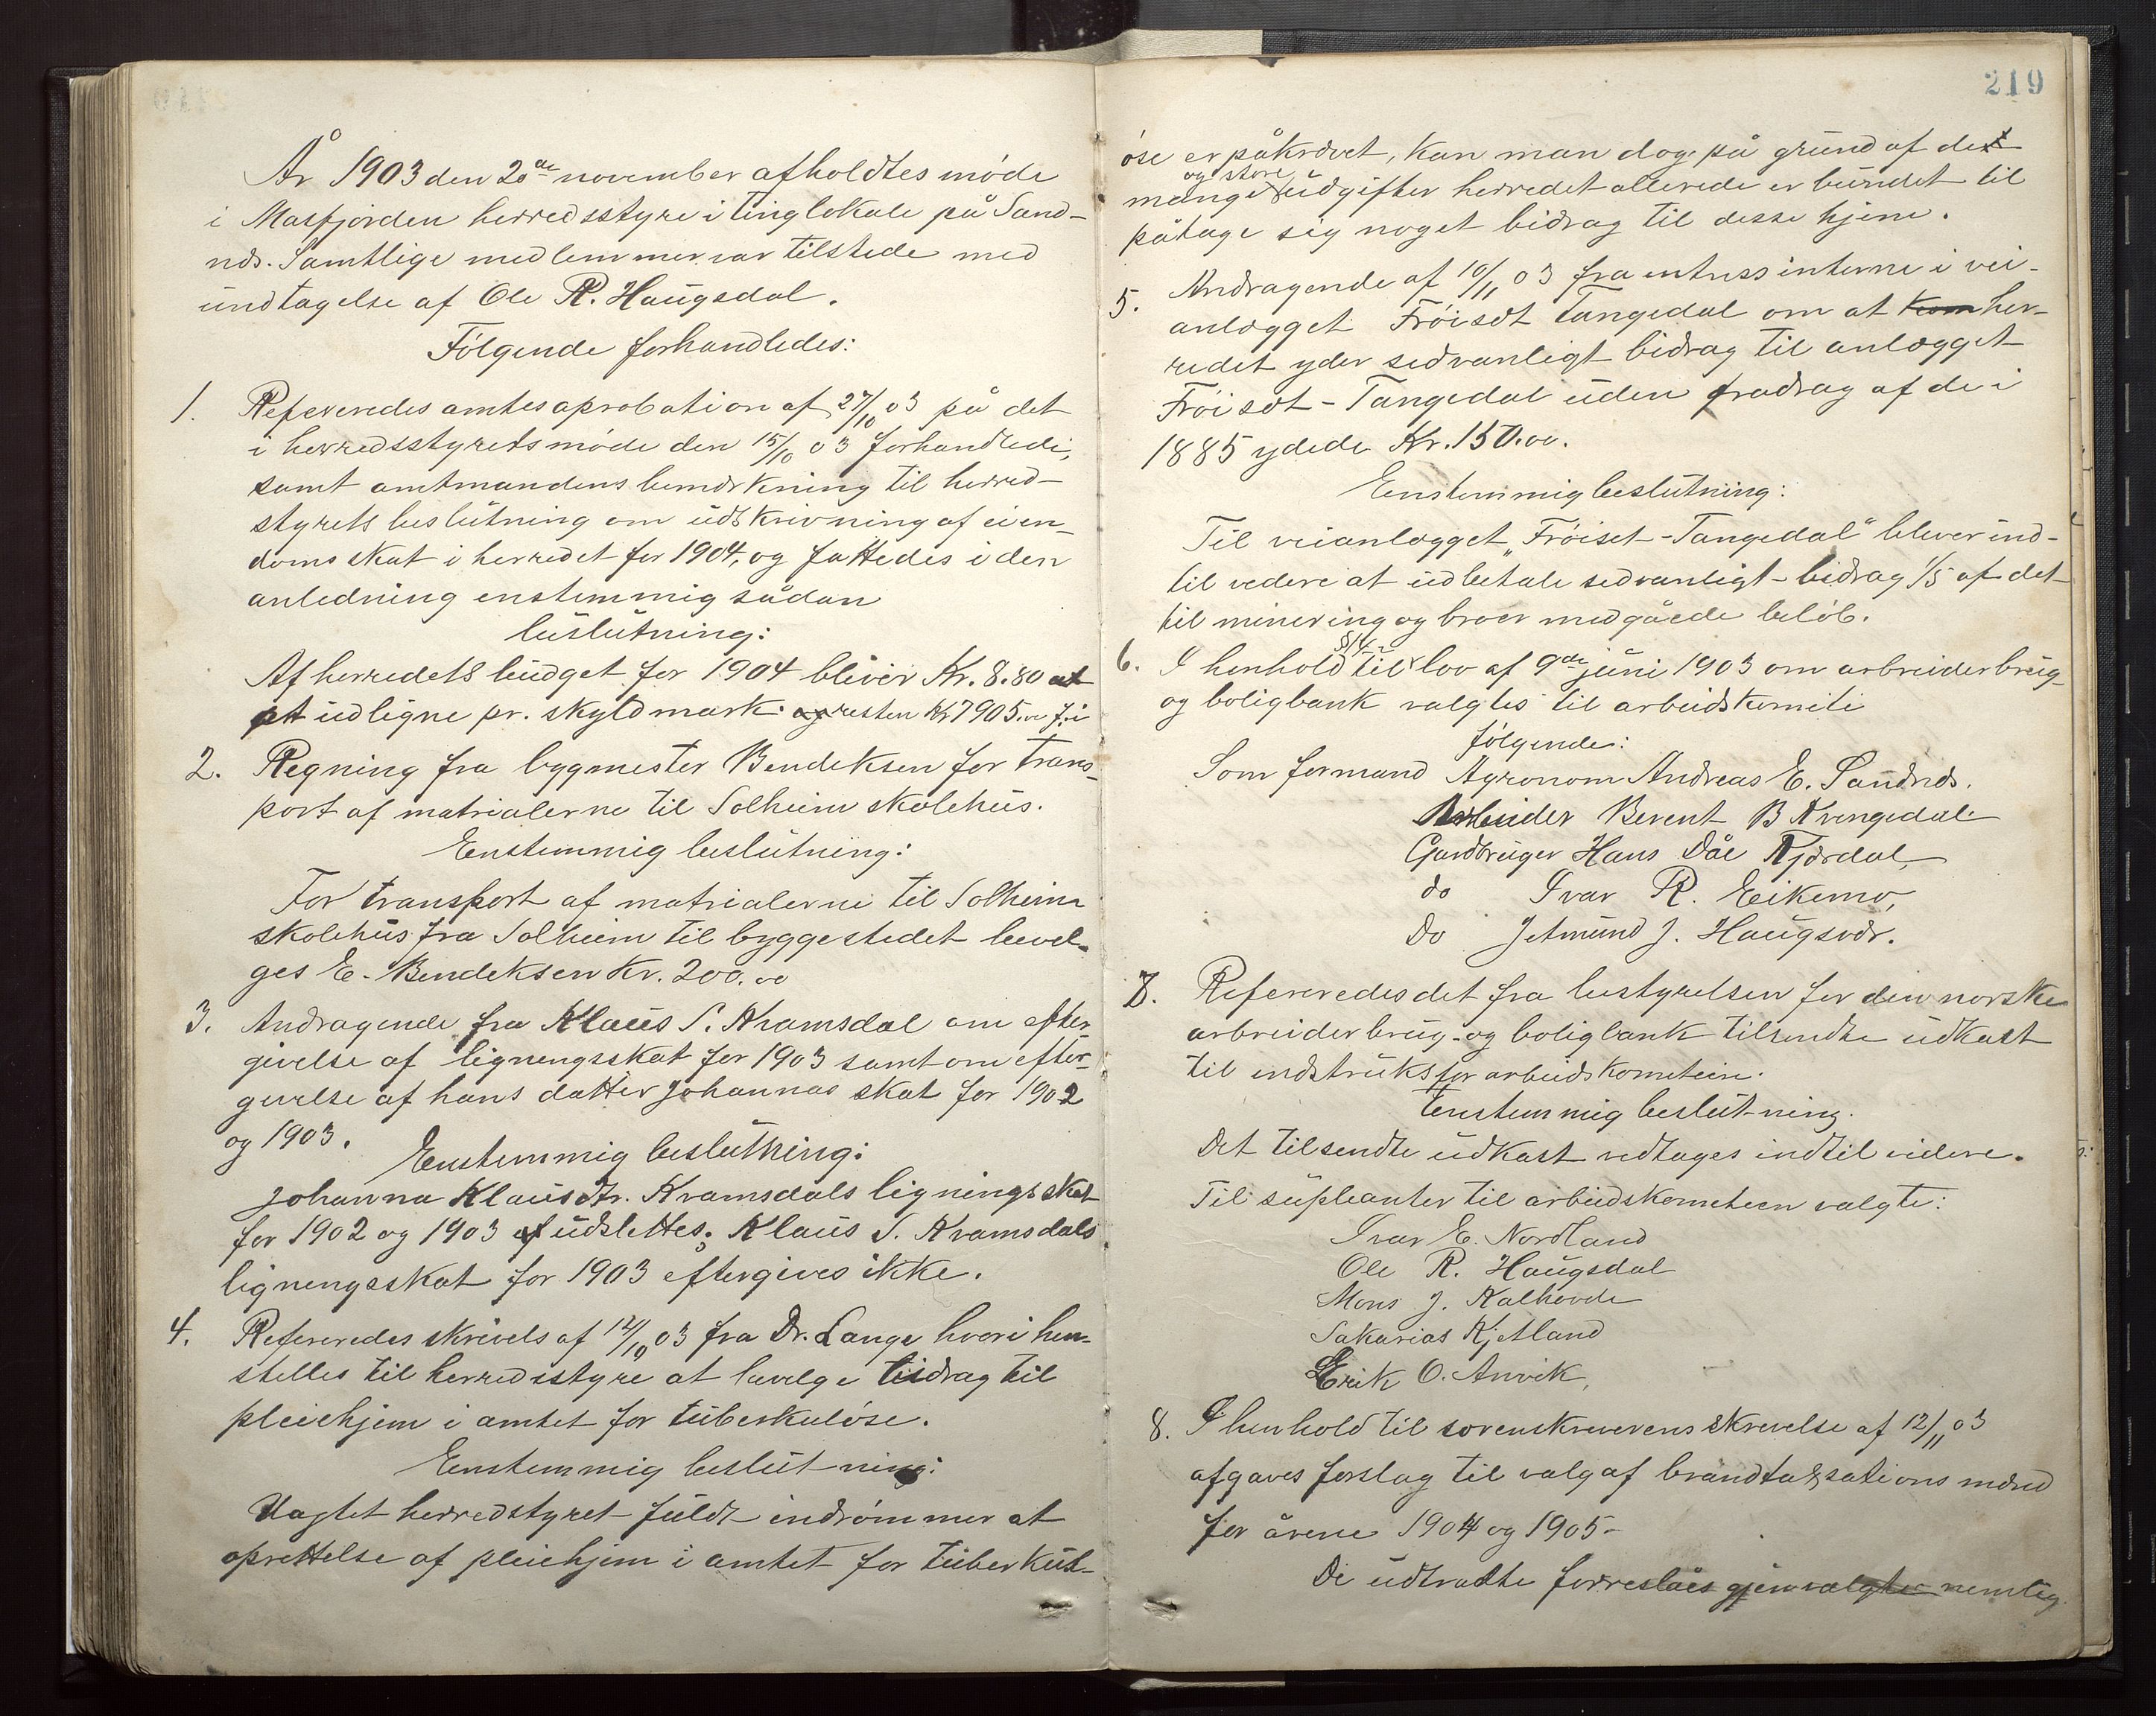 År 1903 den 20de november afholdtes möde
i Masfjorden herredsstyre i tinglokale på Sand-
næs. Samtlige medlemmer var tilstede med
undtagelse af Ole R. Haugsdal.
Fölgende forhandledes:
1. Refereredes amtesaprobation af 27/10 03 på det
i herredsstyrets möde den 15/10 03 forhandlede,
samt amtmandens bemærkning til herred-
styrets beslutning om udskrivning af eien-
domsskat i herredet for 1904, og fattedes i den
anledning enstemmig sådan
beslutning:
Af herredets budget for 1904 bliver Kr. 8.80 at
at udligne pr. skyldmark. og resten Kr 7905.oo
2. Regning fra bygmester Bendeksen for trans-
port af matrialerne til Solheim skolehus.
Eenstemmig beslutning:
For transport af matrialerne til Solheim
skolehus fra Solheim til byggestedet bevel-
ges E. Bendeksen Kr. 200.oo
3. Andragende fra Klaus S. Kramsdal om efter-
givelse af ligningsskat for 1903 samt om efter-
givelse af hans datter Johannas skat for 1902
og 1903.
Eenstemmig beslutning:
Johanna Klausdtr. Kramsdals ligningsskat
for 1902 og 1903 af udslettes; Klaus S. Kramsdals
ligningsskat for 1903 eftergives ikke.
4. Refereredes skrivels af 12/10 03 fra Dr. Lange hvori hen-
stelles til herredsstyre at bevelge bidrag til
pleiehjem i amtet for tuberkulöse.
Eenstemmig beslutning:
Uagtet herredstyret fuldt indrömmer at
oprettelse af pleiehjem i amtet for tuberkul-
219
öse er påkrævet, kan man dog på grund af det
og store
mange udgifter herredet allerede er bundet til
påtage sig noget bidrag til desse hjem.
5. Andragende af 10/11 03 fra entressinterne i vei-
anlægget Fröiset Tangedal om at kom her-
redet yder sedvanligt bidrag til anlægget
Fröiset - Tangedal uden fradrag af de i
1885 ydede Kr. 150.oo.
Eenstemmig beslutning:
Til veianlægget „Fröiset - Tangedal“ bliver ind-
til vedere at udbetale sedvanligt bidrag 1/5 af det
til minering og broer medgåede belöb.
§14
6. I henhold til lov af 9de juni 1903 om arbreiderbrug
og boligbank valgtes til arbeidskomite
fölgende:
Som formand Agronom Andreas E. Sandnæs.
Arbeider Berent B Kvingedal
Gardbruger Hans Dåe Kjærdal,
do Ivar R. Eikemo,
do Jetmund J. Haugsvær.
7. Refereredes det fra bestyrelsen for den norske
arbreiderbrug- og boligbank tilsendte udkast
til indstruks for arbeidskometeen.
Eenstemmig beslutning.
Det tilsendte udkast vedtages indtil videre.
Til supleanter til arbeidskometeen valgte:
Ivar E. Nordland
Ole R. Haugsdal
Mons J. Kalhovde
Sakarias Kjetland
Erik O. Anvik,
8. I henhold til sorenskreverens skrevelse af 12/11 03
afgaves forslag til valg af brandtaksations mænd
for årene 1904 og 1905-
De udtrædte forreslåes gjenvalgte nemlig